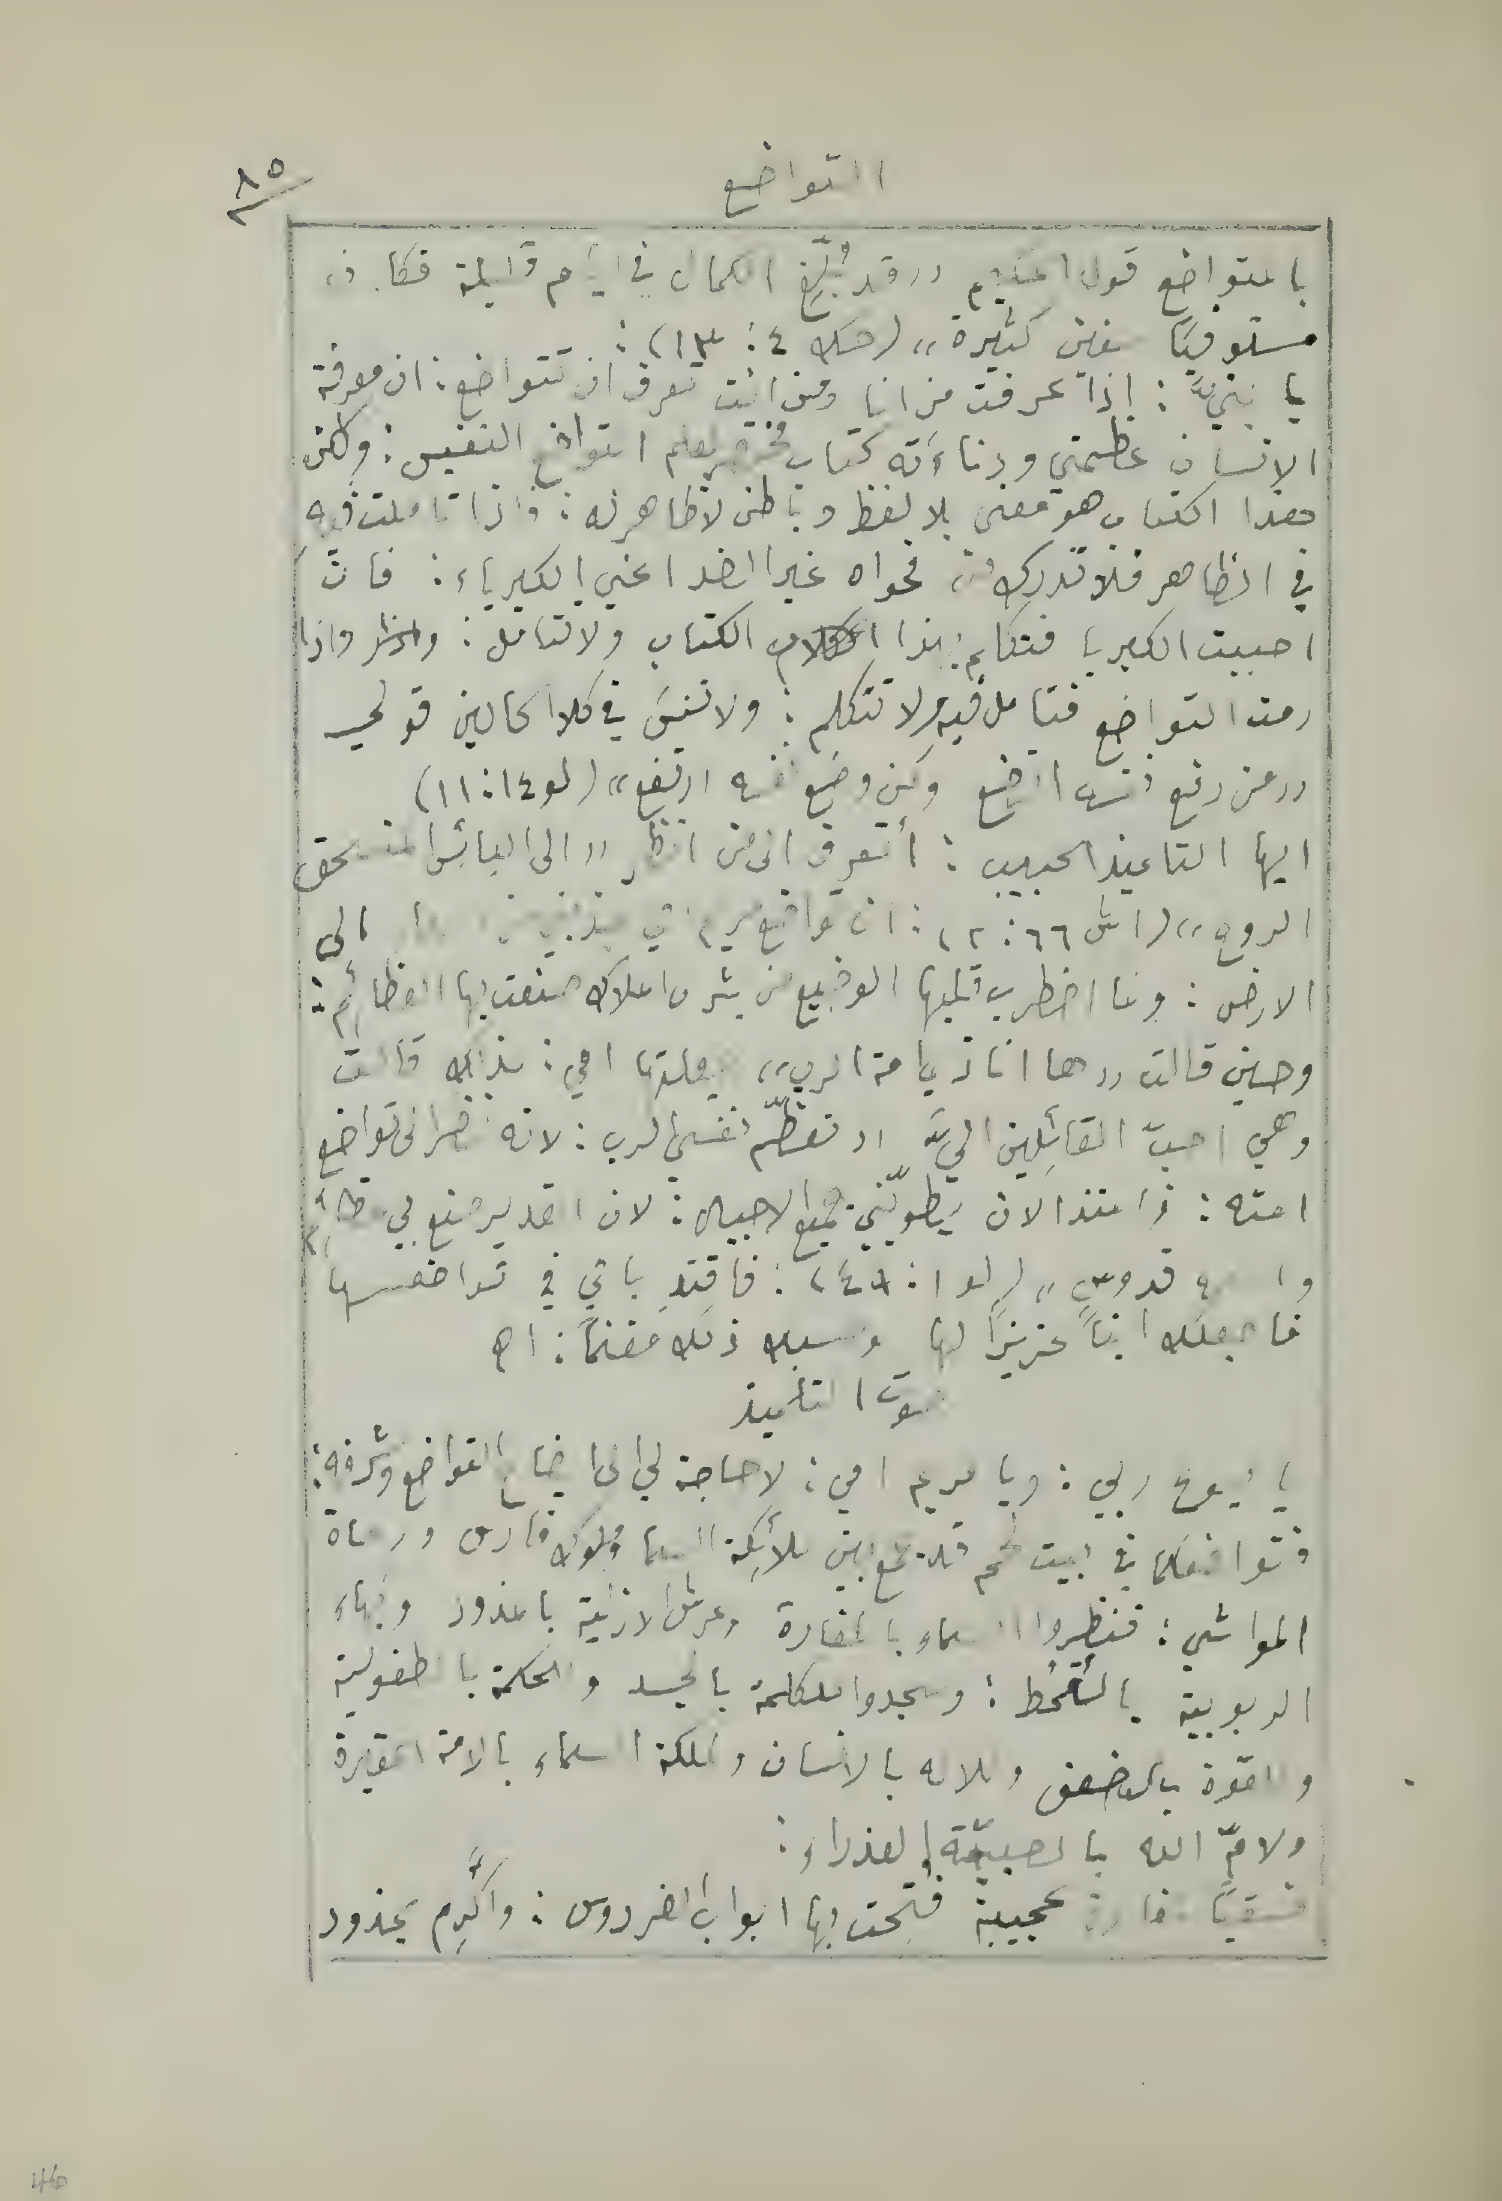 التواضع
٨٥
بالمتواضع قول الحكيم ,, وقد بُلِّغ الكمال في ايام قليلة فكان
مستوفيًا سنين كثيرة ,, (حك ٤: ١٣):
يا بنيَّ: إذا عرفت من انا ومن انت تعرف ان تتواضع: ان معرفة
الانسان عظمتي ودناءَته كتاب مختصر يعلم اتواضع النفيس: ولكن
هذا الكتاب هو معنى بلا لفظ وباطن لا ظاهر له: فاذا تاملت فيه
في الظاهر فلا تدرك من فحواه غير الضد اعني الكبرياء: فان
احببت الكبريا فتكلم بهذا الكتاب ولا تتامل: واذا
رمت التواضع فتامل فيهِ ولا تتكلم: ولا تنسَ في كلا الحالين قولي
,, من رفع نفسه اتضع ومن وضع نفسه ارتفع ,, (لو ١٤: ١١)
ايها التلميذ الحبيب: أتعرف الى من انظر ,, الى البائس المنسحق
الروح ,, (اش ٦٦: ٢): ان تواضع مريم امي الى
الارض: وما اضطرب قلبها الوضيع من بشرى الملاك صنعت بها العظائم:
وحين قالت ,, ها انا ذا امة الرب ,, جعلتها امي: لذلك قالت
وهي احبّ القائلين اليَّ ,, تعظّم نفسي الرب: لانه نظر الى تواضع
امته: فمنذ الان يطوّبني جميع الاجيال: لان القدير صنع بي عظائم
واسمه قدوس ,, (لو ١: ٤٨): فاقتدِ بامي في تواضعها
فاجعلك ابنًا عزيزًا لها وحسبك ذلك مغنمًا: اھ
صوت التلميذ
يا يسوع ربي: ويا مريم امي: لا حاجة لي الى ايضاح التواضع وشرفه:
فتواضعكما في بيت لحم قد جمع بين ملائكة السما وملوك فارس ورعاة
المواشي: فنظروا السماء بالمغارة وعرش الازلية بالمذود وبهاء
الربوبية بالقُمُط: وسجدوا للكلمة بالجسد وللحكمة بالطفولية
وللقوة بالضعف وللاله بالانسان ولملكة السماء بالامة الحقيرة
ولامّ الله بالصبيّة العذراء:
فسقيًا لمغارة عجيبة فُتِحت بها ابواب الفردوس: واُكرِم بمذود